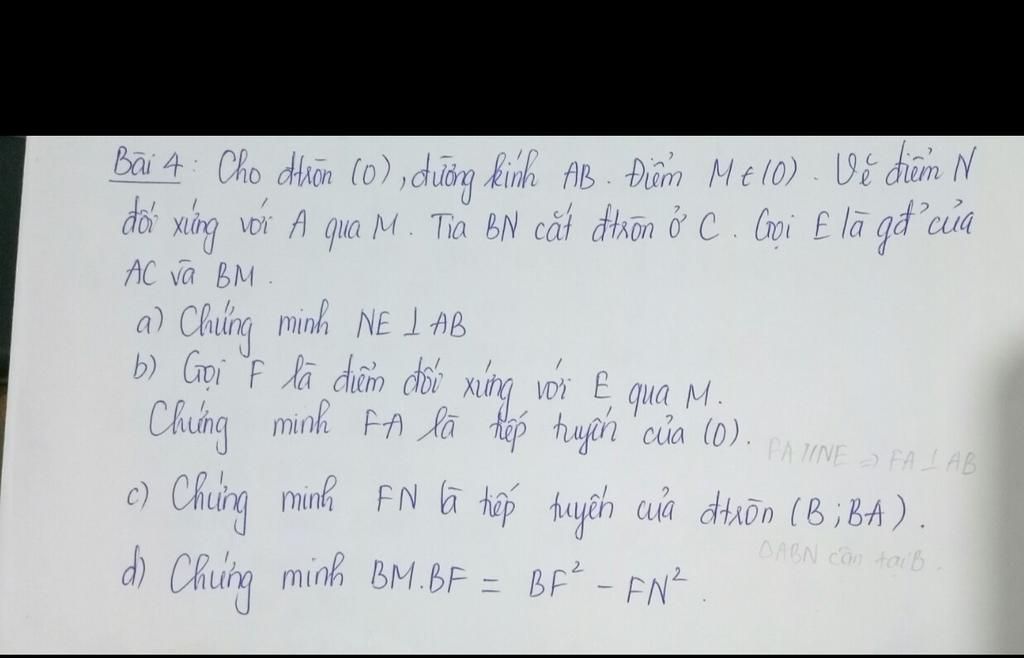 Bài 4: Cho đtròn (O), đường kính AB. Điểm M ∈ (O). Vẽ điểm N
đối xứng với A qua M. Tia BN cắt đtròn ở C. Gọi E là gđ' của
AC và BM.
a) Chứng minh NE ⊥ AB
b) Gọi F là điểm đối xứng với E qua M.
Chứng minh FA là tiếp tuyến của (O).
FA // NE => FA ⊥ AB
c) Chứng minh FN là tiếp tuyến của đtròn (B; BA).
ΔABN cân tại B.
d) Chứng minh BM.BF = BF² - FN².